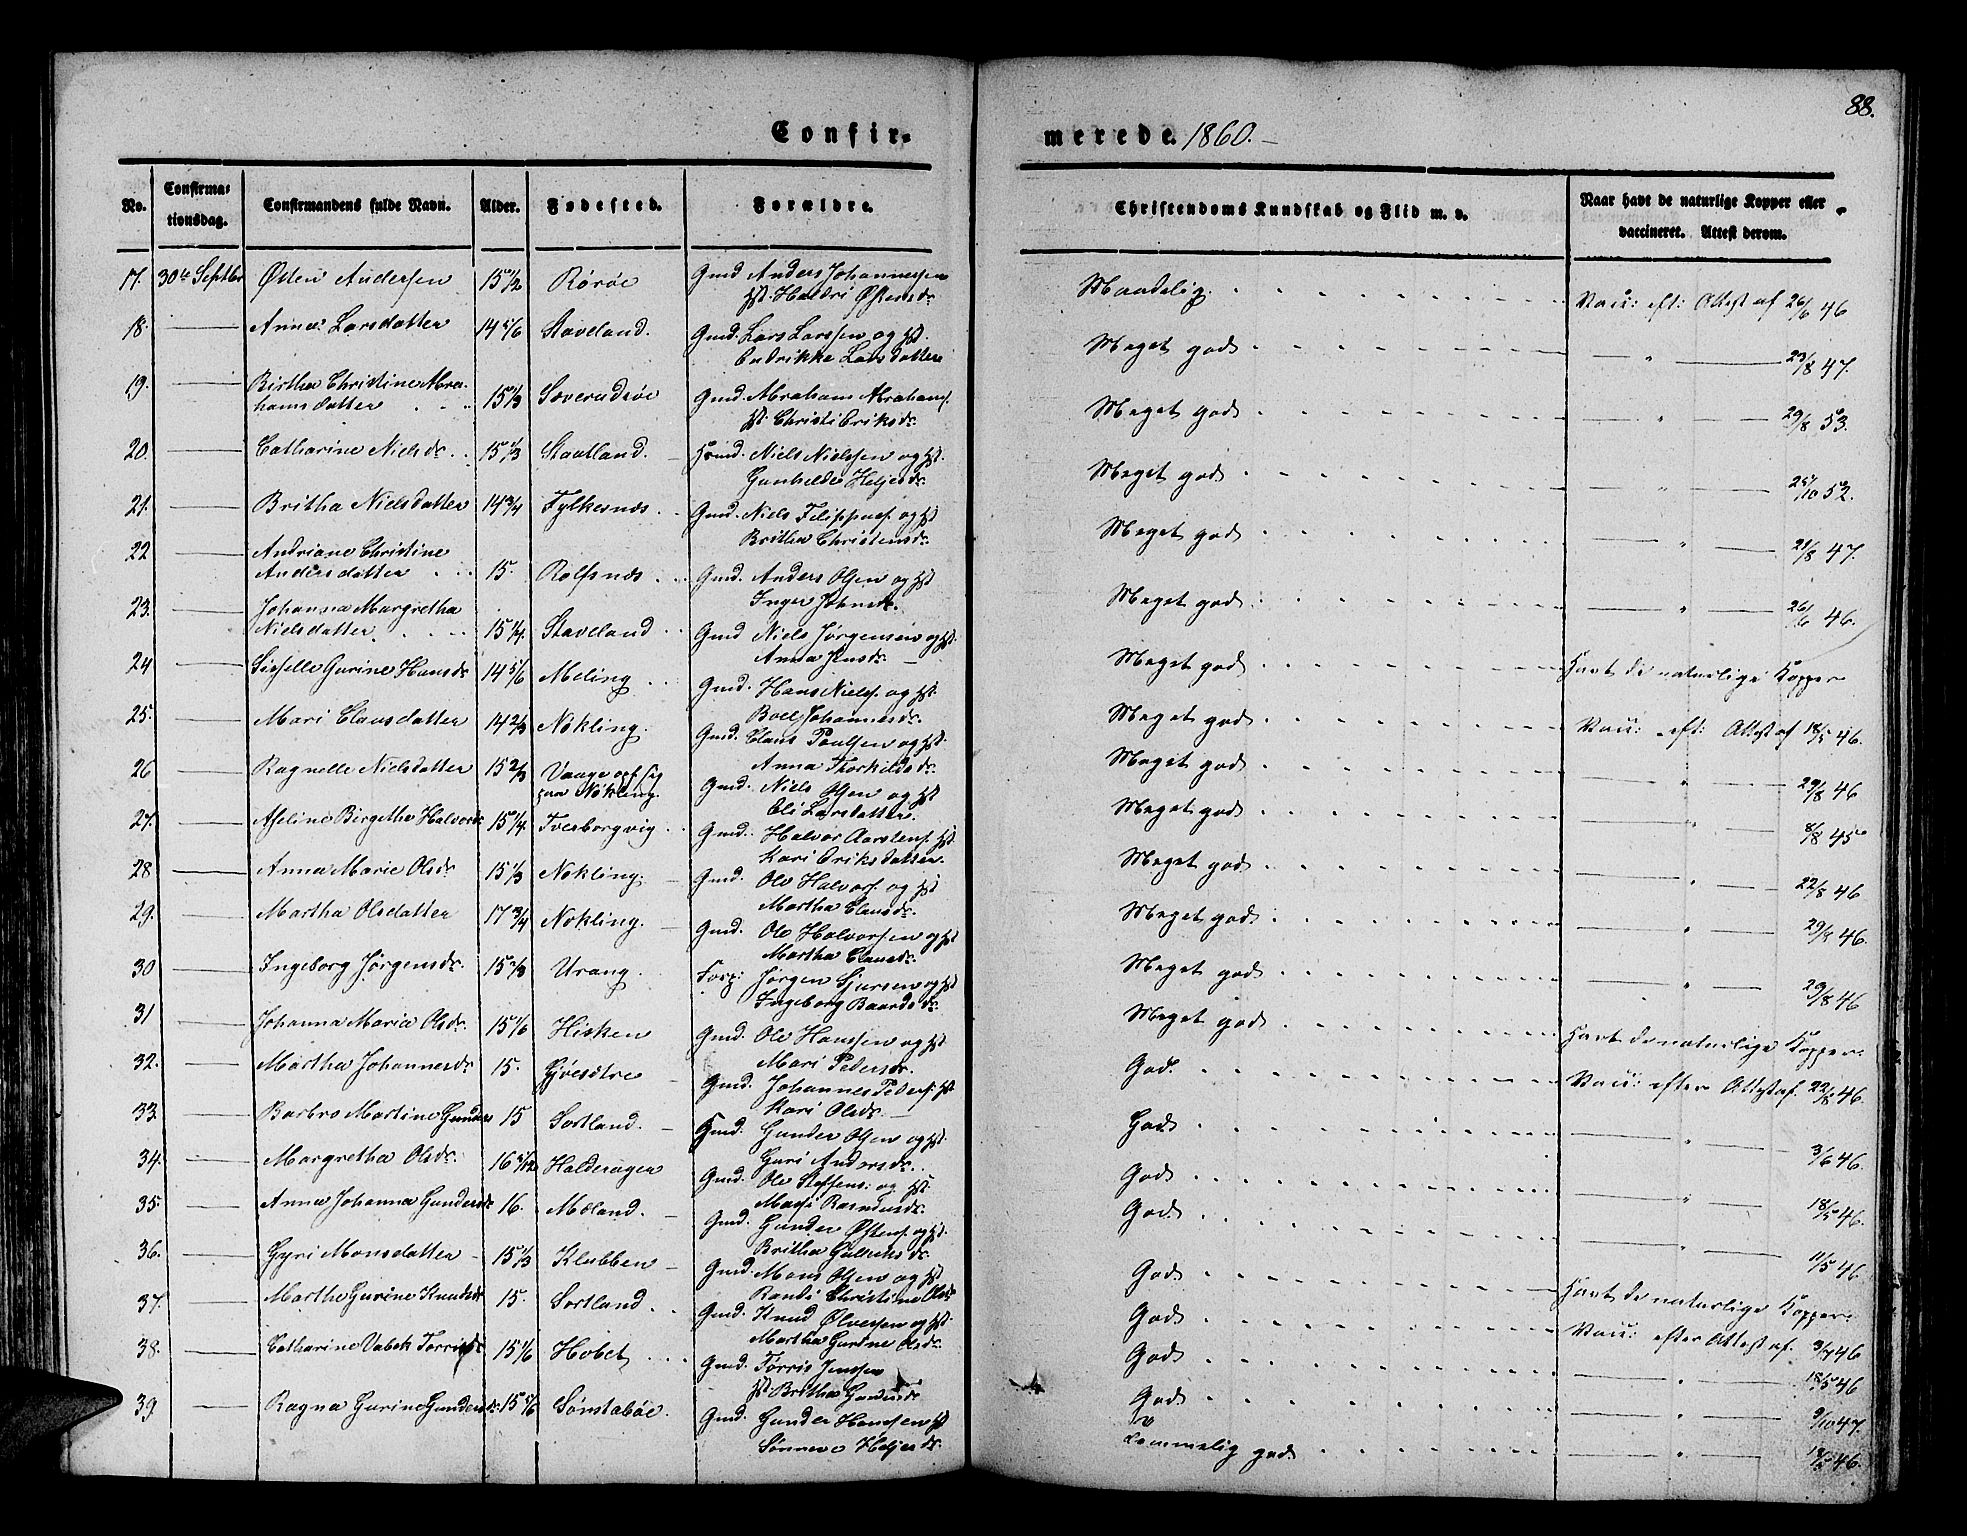 88.
Confirmerede 1860.
No. Confirmationsdag. Confirmandens fulde Navn. Alder. Fødested. Forældre. Christendoms Kundskab og Flid m. v. Naar havt de naturlige Kopper eller vaccineret. Attest derom.
17. 30te Septbr Østen Andersen 15 1/2 Rørøe Gmd Anders Johannessen Maadelig. Vacc: eft: Attest af 26/6 46
Hst. Haldri Østensdr.
18. Anna Larsdatter 14 5/6 Staveland. Gmd. Lars Larssen og Hst. Meget god 23/8 47.
Endrikke Larsdatter
19. Birtha Christine Abra- Gmd. Abraham Abrahams. Meget god 29/8 53.
hamsdatter 15 1/3 Sæverudsøe Hst. Christi Eriksdr.
20. Catharine Nielsdr. 15 1/3 Staatland. Niels Nielssen og Hst. Meget god 25/10 52.
Gunhilde Heljesdr.
21. Britha Nielsdatter 14 3/4 Fylkesnæs Gmd. Niels Filippus. og Hst Meget god 21/8 47.
Britha Christensdr.
22 Andriane Christine
Andersdatter 15. Rolfsnæs Gmd. Anders Olsen og Hst Meget god 26/6 46.
Inger Johnsdr.
23. Johanna Margretha
Nielsdatter 15 1/4. Staveland Gmd Niels Jørgensen og Hst. Meget god Havt de naturlige Kopper
Anna Jensdr.
24 Sisselle Gurine Hansdr 14 5/6 Meling Gmd. Hans Niels. og Hst. Meget god Vacc: eft: Attest af 18/5 46.
Boel Johannesdr.
25. Mari Clausdatter 14 2/3 Nokling. Gmd. Claus Paulsen og Hst. Meget god 29/8 46
Anna Thorkildsdr.
26 Ragnelle Nielsdatter 15 2/3 Vaage opf. sig Gmd. Niels Olsen og Hst Meget god 8/8 45
paa Nokling. Eli Larsdatter.
27. Aseline Birgithe Halvorsdr 15 1/4. Tverborgvig Gmd. Halvor Aarstens. Hst. Meget god 22/8 46
Kari Eriksdatter
28 Anna Marie Olsdr 15 1/3 Nokling. Gmd. Ole Halvors. og Hst Meget god 29/8 46.
Martha Clausdr.
29. Martha Olsdatter 17 3/4 Nokling. Gmd. Ole Halvorsen og Hst Meget god 29/8 46
Martha Clausdr.
30 Ingeborg Jørgensdr. 15 2/3 Urang. Forp: Jørgen Sjursen og Hst Meget god Havt de naturlige Kopper
Ingeborg Baardsdr.
31 Johanna Maria Olsdr. 15 1/6 Hisken Gmd. Ole Hanssen og Hst God. Vacc: efter Attest af. 22/8 46.
Mari Pedersdr.
32. Martha Johannesdr 15. Gjøesdtre Gmd. Johannes Peders. Hst God. 3/6 46.
Kari Olsdr.
33. Barbro Martine Gunders 15 Sortland. Gmd. Gunder Olsen og Hst. God 18/5 46.
Guri Andersdr.
34. Margretha Olsdr. 16 Halderager Gmd. Ole Steffens. og Hst. God. 11/5 46.
Rasmusdr.
35. Anna Johanna Gundersdr 16. Mæland. Gmd. Gunder Østens. og Hst God Havt de naturlige Kopper
Britha Gulleiksdr.
36. Gyri Monsdatter 15 1/3 Klubben Gmd. Mons Olsen og Hst God Vacc: efter Attest af. 46
Randi Christine Olsdr
37. Martha Gurine Knudsdr 15. Sortland. Gmd. Knud Ølversen og Hst. God 18/5 46
Martha Gurine Olsdr.
38. Catharine Vabek Torrisdr 15 1/6 Hobet Gmd. Torris Jenssen God 9/10 47.
Hst. Britha Gundersdr
39 Ragna Gurine Gundersdr. 15 5/6 Sønstabøe. Gmd. Gunder Hanssen Hst temmelig god. 18/5 46.
Sønneve Heljesdr.